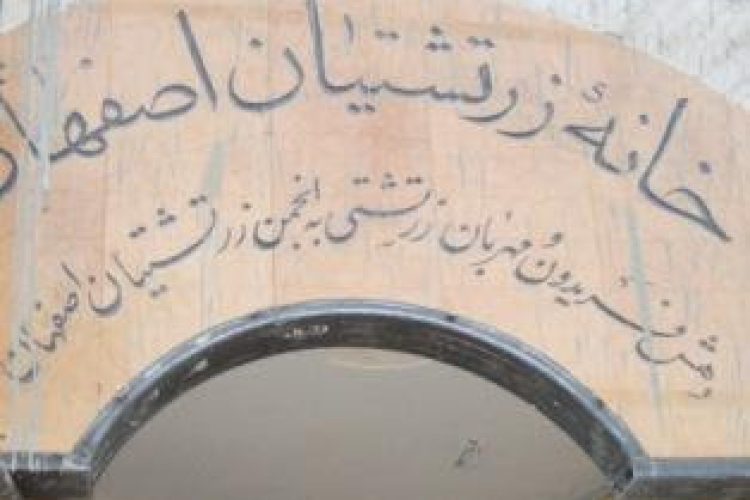 خانهٔ زرتشتیان اصفهان
دهش فریدون مهربان زرتشتی به انجمن زرتشتیان اصفهان